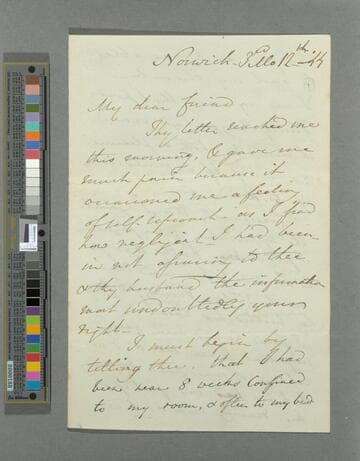 Norwich 3d Mo 12th 44
My dear friend
Thy letter reached me
this morning, & gave me
much pain because it
occasioned me a feeling
of self reproach as I find
how negligent I had been
in not to thee
& thy husband the information
most undoubtedly your
right -
I must begin by
telling thee that I had
been near 8 weeks confined
to my room, & often to my bed